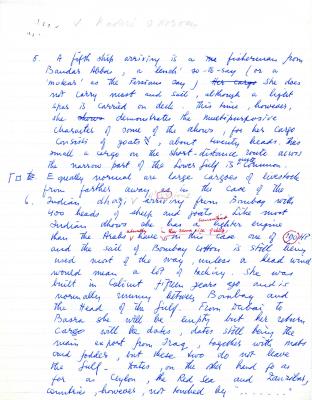 5. A fifth ship arriving is a fisherman from
Bandar Abbas, a 'lench' so-to-say (or a
as the Persians say) Her cargo She does
not carry mast and sail, although a light
spar is carried on deck. This time, however,
she shows demonstrates the multipurposive
character of some of the dhows, for her cargo
consists of goats, about twenty heads. Such
small a cargo on the short-distance route across
the narrow part of the Lower Gulf is common.
Equally normal are large cargoes of livestock
from farther away, as in the case of the
6. Indian dhow, arriving from Bombay with
400 heads of sheep and goats. Like most
Indian dhows she has a lighter engine
than the Arabs have in this case one of 100 HP
and the sail of Bombay cotton is still being
used most of the way, unless a head wind
would mean a lot of tacking. She was
built in Calicut fifteen years ago and is
normally running between Bombay and
the Head of the Gulf. From Dubai to
Basra she will be empty but her return
cargo will be dates, dates still being the
main export from Iraq, together with mats
and fodder, but these two do not leave
the Gulf. Dates, on the other hand go as
far as Ceylon, the Red Sea and Zanzibar,
countries, however, not touched by